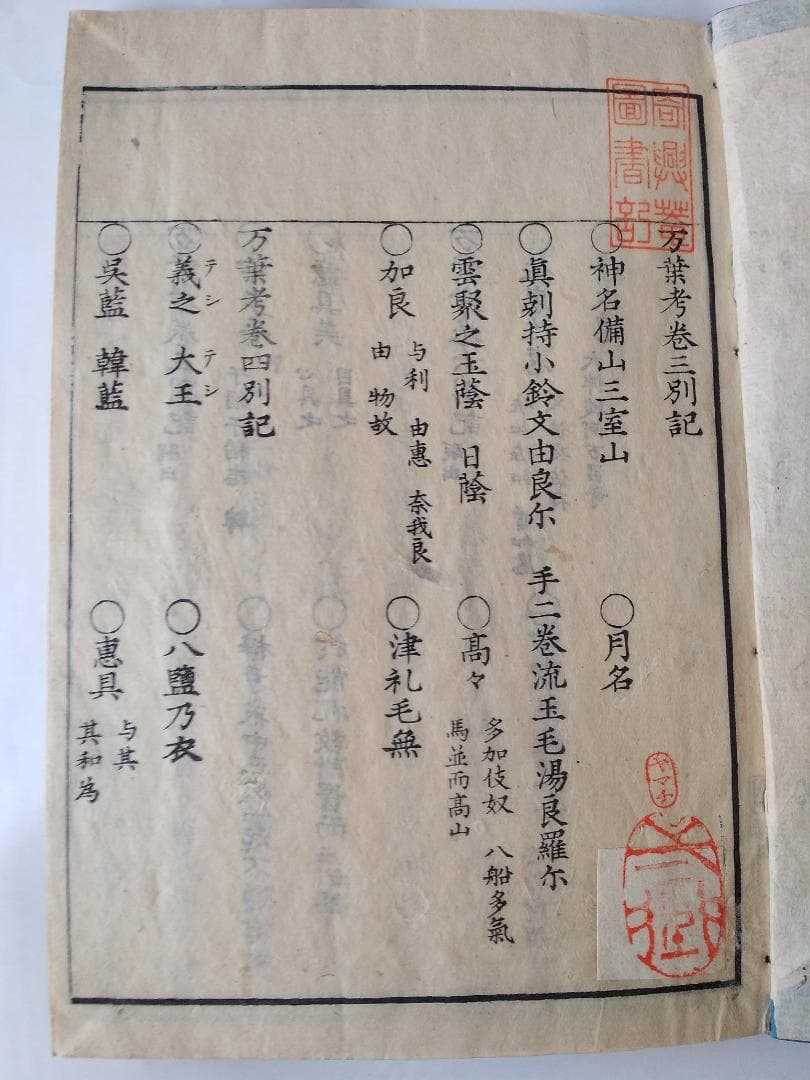 万葉考卷三別記
○神名備山三室山　○月名
○眞刾持小鈴文由良尓　手二卷流玉毛湯良羅尓
○雲聚之玉蔭　日蔭　○高々　多加伎奴　八船多氣
馬並而高山
○加良　与利　由惠　奈我良
由　物故
○津礼毛無
万葉考卷四別記
○義之　大王　○八鹽乃衣
テシ　テシ
○吳藍　韓藍　○惠具　与其
其和為
圖書記
ヤマチ